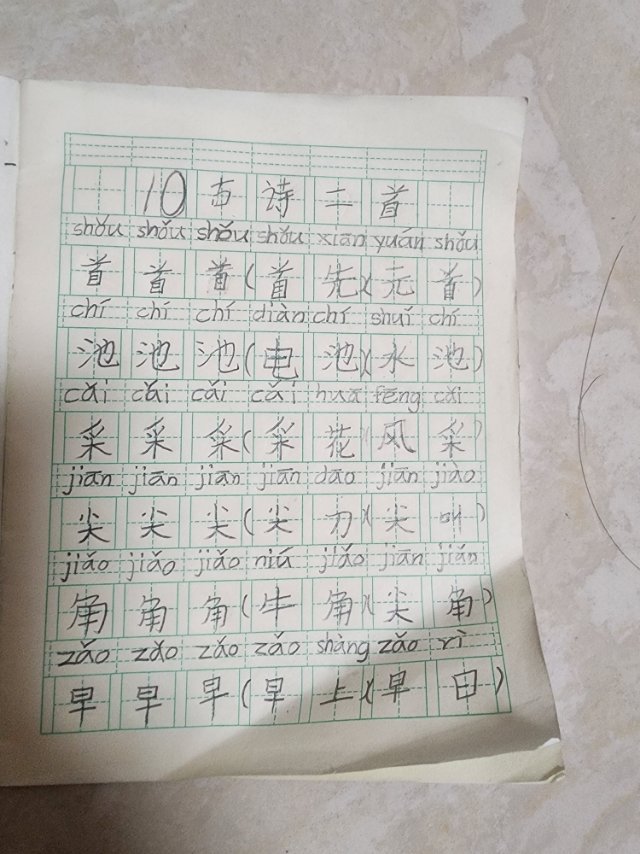 10古诗二首
shǒu shǒu shǒu shǒu xiān yuán shǒu
首 首 首(首 先)(元 首)
chí chí chí diàn chí shuǐ chí
池 池 池(电 池)(水 池)
cǎi cǎi cǎi cǎi huā fēng cǎi
采 采 采(采 花)(风 采)
jiān jiān jiān jiān dāo jiān jiào
尖 尖 尖(尖 刀)(尖 叫)
jiǎo jiǎo jiǎo niú jiǎo jiān jiǎn
角 角 角(牛 角)(尖 角)
zǎo zǎo zǎo zǎo shàng zǎo rì
早 早 早(早 上)(早 日)